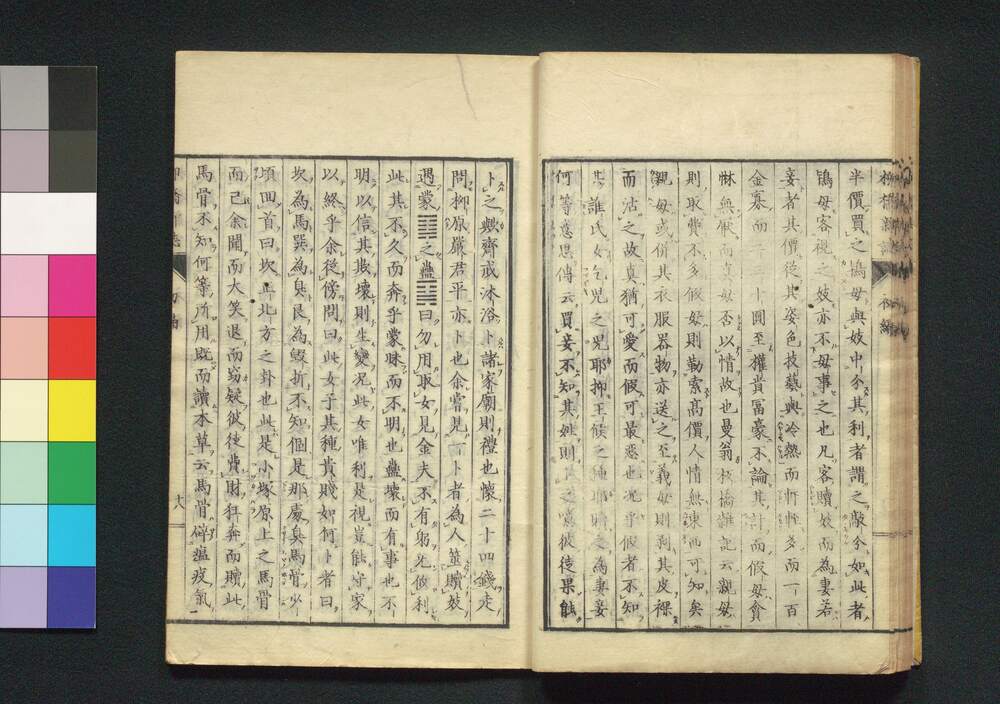 半價買之鴇母與妓中分其利者謂之敲分如此者
鴇母客視之妓亦不母事之也凡客贖妓而為妻若
妾者其價從其姿色技藝與冷熱而折旺多而一百
金寡而二十圓至權貴冨豪不論其計而假母貪
惏無厭而真母否以情故也曼翁板橋雜記云親母
則取費不多假母則勒索高價人情無涷可知矣
親母或併其衣服器物亦送之至義母則剥其皮裸
而沽之故真猶可愛而假可最惡也况乎假者不知
其誰氏女兒之畏耶抑王候之種贖之為妻妾
何等意思傳云買妾不知其姓則卜之噫彼徒果能
卜之歟齊戒沐浴卜諸家廟則禮也懷二十四錢走
問柳原嚴君平亦卜也余嘗見一卜者為人筮贖妓
遇蒙䷃之蠱䷑曰勿用取女見金夫不有躬无攸利
此其不久而奔乎蒙昧而不明也蠱壊而有事也不
明以信其欺壊則生變况此女唯利是視豈能守家
以終乎余從傍問曰此女子其種貴賤如何卜者曰
坎為馬巽為臭艮為㪍折不知個是那處臭馬骨少
頃回首曰坎正北方之卦也此是小塚原上之馬骨
而已余聞而大笑退而窈疑彼徒費財狂奔而贖此
馬骨不知何等所用既而讀本草云馬骨僻瘟疫氣
十八